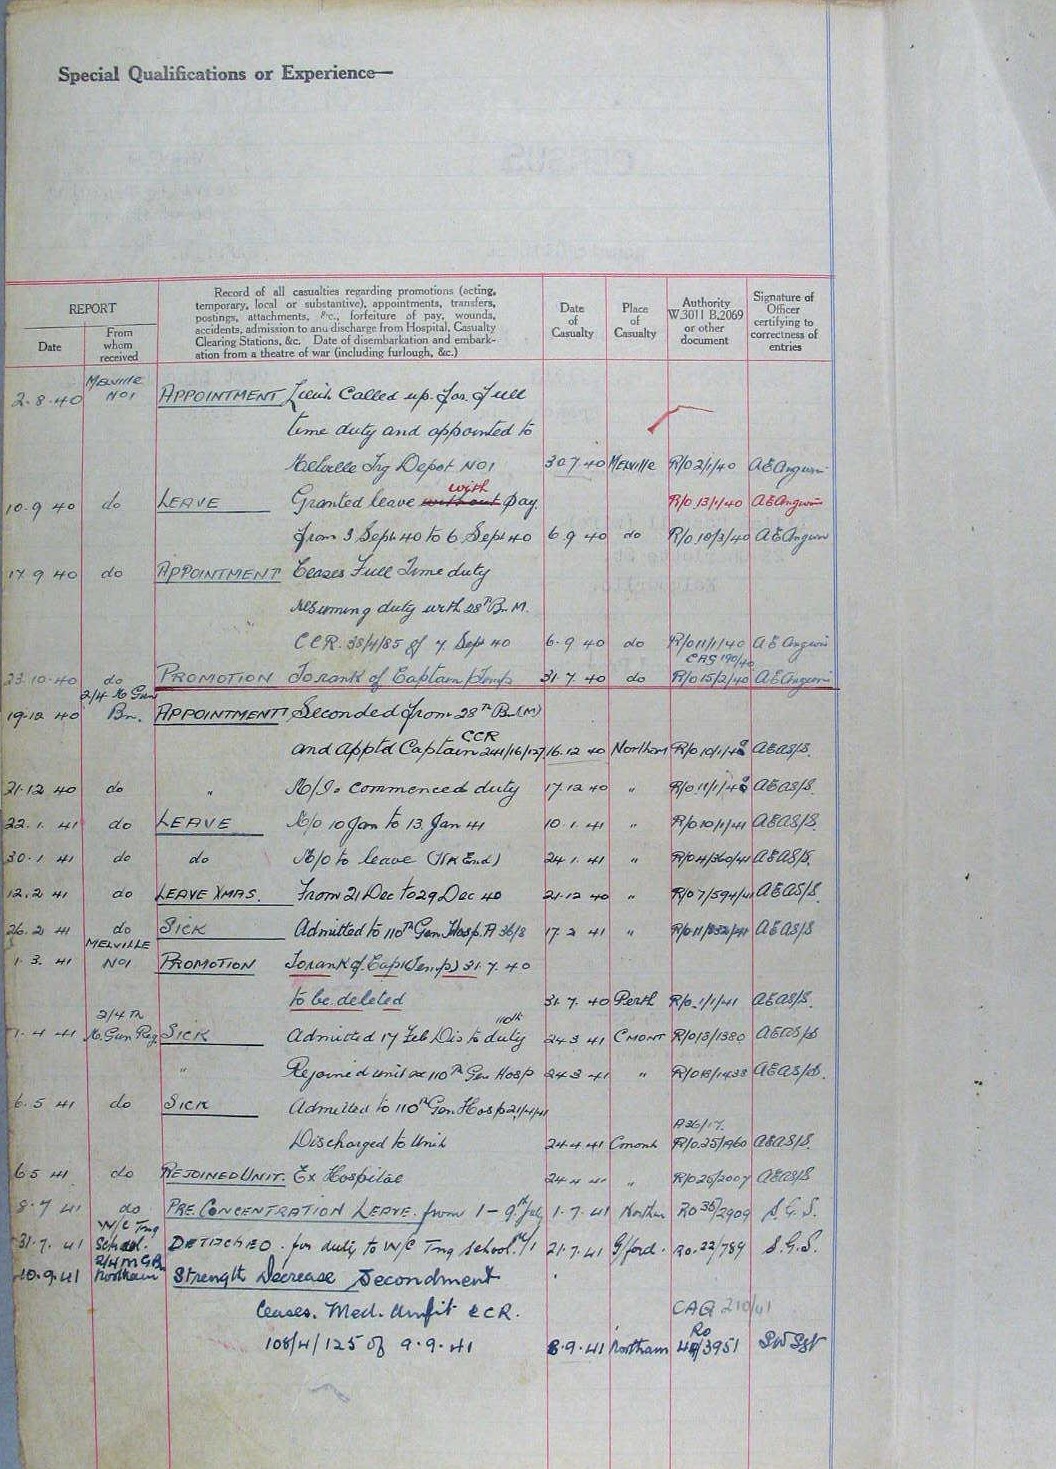 Special Qualifications or Experience—
REPORT
Date
From whom received
Record of all casualties regarding promotions (acting,
temporary, local or substantive), appointments, transfers,
postings, attachments, &c., forfeiture of pay, wounds,
accidents, admission to and discharge from Hospital, Casualty
Clearing Stations, &c. Date of disembarkation and embark-
ation from a theatre of war (including furlough, &c.)
Date of Casualty
Place of Casualty
Authority W.3011 B.2069 or other document
Signature of Officer certifying to correctness of entries
2.8.40 MELVILLE NO1 APPOINTMENT Lieut Called up for full
time duty and appointed to
Melville Trg Depot NO1 30.7.40 Melville R/O 2/1/40 A E Angwin
10.9 40 do LEAVE Granted leave without with pay. R/O 13/1/40 A E Angwin
from 3 Sept 40 to 6 Sept 40 6.9 40 do R/O 10/3/40 A E Angwin
17.9 40 do APPOINTMENT Ceases Full Time duty
resuming duty with 28th Bn. M.
CCR. 38/4/85 of 7 Sept 40 6.9 40 do R/O 11/1/40 A E Angwin
23.10.40 do PROMOTION To rank of Captain /Temp 31.7.40 do CAG 190/40 R/O 15/2/40 A E Angwin
19.12 40 2/4 M Gun Bn. APPOINTMENT Seconded from 28th Bn (M)
and apptd Captain CCR 241/16/127 16.12 40 Northam R/O 10/1/40 AEAS/S.
21.12 40 do " M/I. commenced duty 17.12 40 " R/O 11/1/40 AEAS/S
22.1.41 do LEAVE M/O 10 Jan to 13 Jan 41 10.1.41 " R/O 10/1/41 AEAS/S.
30.1 41 do do M/O to leave (Wk End) 24.1.41 " R/O 4/360/41 AEAS/S.
12.2 41 do LEAVE XMAS. From 21 Dec to 29 Dec 40 21.12 40 " R/O 7/594/41 AEAS/S.
26.2 41 do SICK Admitted to 110th Gen Hosp. A 36/8 17.2 41 " R/O 11/832/41 AEAS/S
1.3.41 MELVILLE NO1 PROMOTION To rank of Capt (Temp) 31.7.40
to be deleted 31.7.40 Perth R/O 1/1/41 AEAS/S.
7.4 41 2/4 Th M. Gun Reg SICK Admitted 17 Feb Dis to duty 110th 24.3 41 CMONT R/O 13/1380 AEAS/S
" Rejoined unit ex 110th Gen Hosp 24.3 41 " R/O 15/1433 AEAS/S.
6.5 41 do SICK Admitted to 110th Gen Hosp 21/4/41
Discharged to Unit 24.4 41 Cmont A36/17. R/O 25/1960 AEAS/S.
6.5 41 do REJOINED UNIT. Ex Hospital 24.4 41 " R/O 25/2007 AEAS/S
8.7 41 do PRE. CONCENTRATION LEAVE. from 1 - 9th July 1.7.41 Northam RO 35/2909 S.G.S.
31.7.41 W/C Tng School. DETACHED. for duty to W/C Tng School. 21.7.41 G/ford. Ro. 22/789 S.G.S.
10.9.41 2/4 M G Bn Northam Strength Decrease Secondment
Ceases. Med. Unfit CCR. CAG 210/41
108/4/125 of 9.9.41 8.9.41 Northam Ro 48/3951